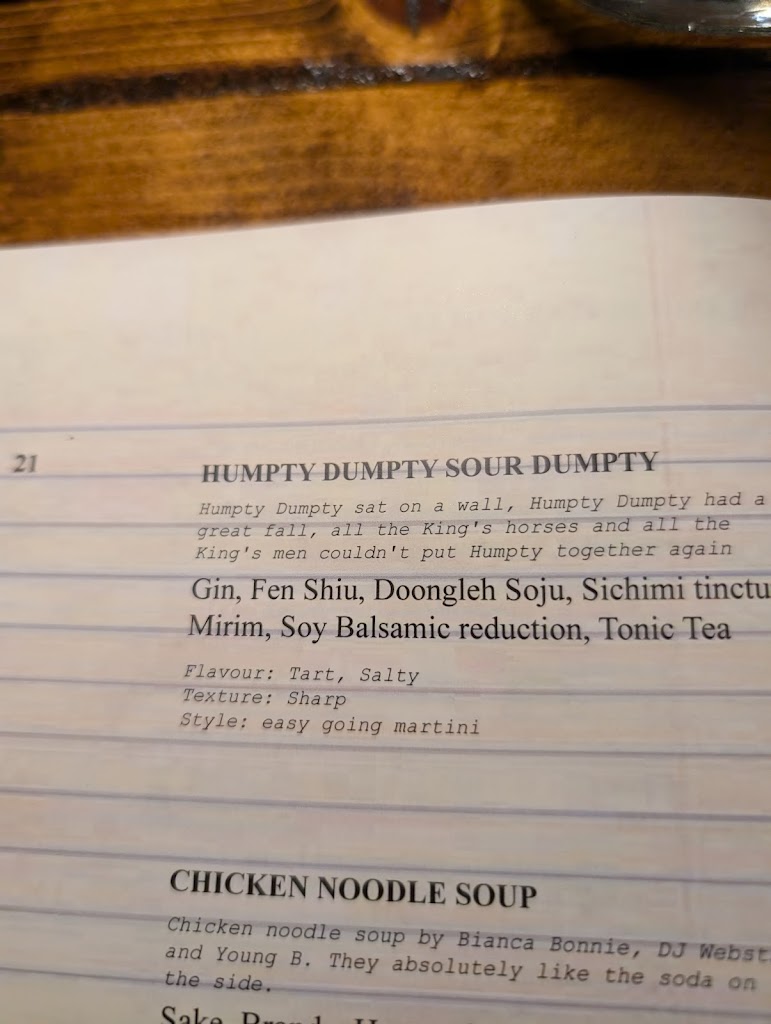 21
HUMPTY DUMPTY SOUR DUMPTY
Humpty Dumpty sat on a wall, Humpty Dumpty had a
great fall, all the King's horses and all the
King's men couldn't put Humpty together again
Gin, Fen Shiu, Doongleh Soju, Sichimi tinctu
Mirim, Soy Balsamic reduction, Tonic Tea
Flavour: Tart, Salty
Texture: Sharp
Style: easy going martini
CHICKEN NOODLE SOUP
Chicken noodle soup by Bianca Bonnie, DJ Webst
and Young B. They absolutely like the soda on
the side.
Sake,